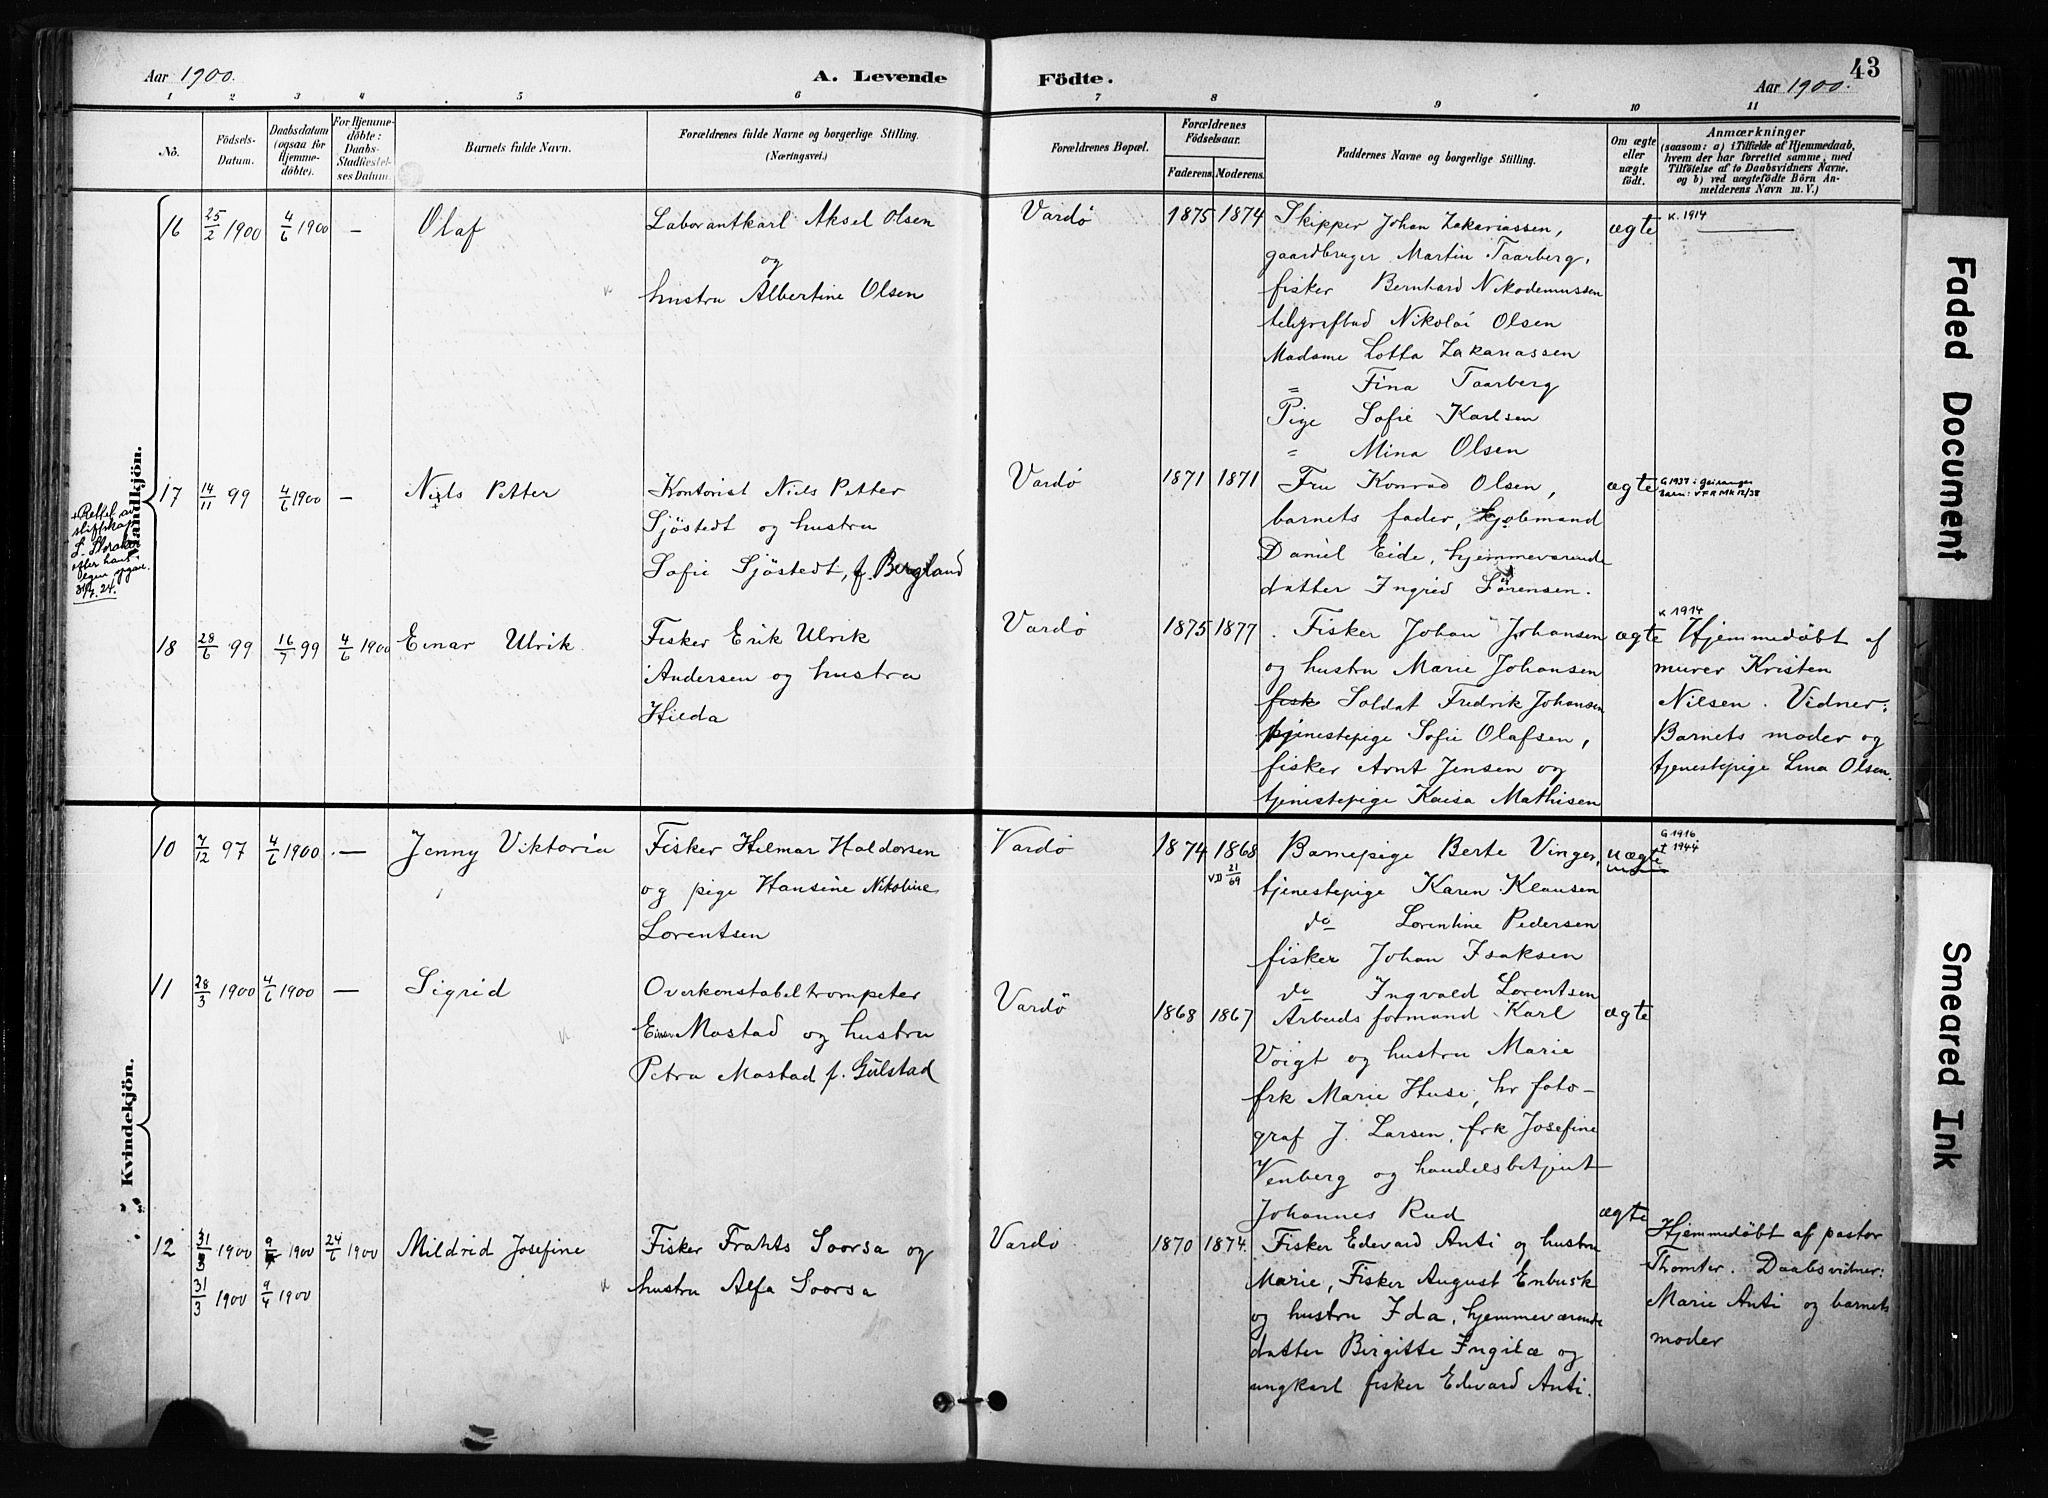 Aar 1900.
A. Levende
Födte.
Aar 1900.
43
1 2 3 4 5 6 7 8 9 10 11
No.
Födsels-
Datum.
Daabsdatum
(ogsaa for
Hjemme-
döbte).
For Hjemme-
döbte:
Daabs-
Stadfæstel-
ses Datum.
Barnets fulde Navn.
Forældrenes fulde Navne og borgerlige Stilling.
(Næringsvei.)
Forældrenes Bopæl.
Forældrenes
Födselsaar.
Faderens. Moderens.
Faddernes Navne og borgerlige Stilling.
Om ægte
eller
uægte
födt.
Anmærkninger
(saasom: a) i Tilfælde af Hjemmedaab,
hvem der har forrettet samme, med
Tilföielse af to Daabsvidners Navne.
og b) ved uægtefödte Börn An-
melderens Navn m. V.)
Mandkjön.
16 25/2 1900 4/6 1900 — Olaf
Laborantkarl Aksel Olsen
og
hustru Albertine Olsen
Vardö 1875 1874
Skipper Johan Zakariassen,
gaardbruger Martin Taarberg,
fisker Bernhard Nikodemussen
telegrafbud Nikolai Olsen
Madame Lotta Zakariassen
" Fina Taarberg
Pige Sofie Karlsen
" Mina Olsen
ægte
K. 1914
17 14/11 99 4/6 1900 — Niels Petter
Kontorist Niels Petter
Sjöstedt og hustru
Sofie Sjöstedt, f. Bergland
Vardö 1871 1871
Fru Konrad Olsen,
barnets fader, kjøbmand
Daniel Eide, hjemmeværende
datter Ingrid Sørensen.
ægte
G 1937 i Geiranger
+ Rettet av
egen
30/7. 24.
18 28/6 99 16/7 99 4/6 1900 Einar Ulrik
Fisker Erik Ulrik
Andersen og hustru
Hilda
Vardö 1875 1877
Fisker Johan Johansen
og hustru Marie Johansen
fisk Soldat Fredrik Johansen
tjenestepige Sofie Olafsen,
fisker Arnt Jensen og
tjenestepige Kaisa Mathisen
ægte
K 1914
Hjemmedøbt af
murer Kristen
Nilsen. Vidner:
Barnets moder og
tjenestepige Lina Olsen.
Kvindekjön.
10 7/12 97 4/6 1900 — Jenny Viktoria
Fisker Hilmar Haldorsen
og pige Hansine Nikoline
Lorentsen
Vardö 1874 1868
21/69
Barnepige Berte Vinger,
tjenestepige Karen Klausen
do Lorentine Pedersen
fisker Johan Isaksen
do Ingvald Lorentsen
uægte
G 1916
† 1944
11 28/3 1900 4/6 1900 — Sigrid
Overkonstabeltrompeter
Einar Mostad og hustru
Petra Mostad f. Gülstad
Vardö 1868 1867
Arbeidsformand Karl
Voigt og hustru Marie
frk Marie Huse, hr foto-
graf J. Larsen, frk Josefine
Venberg og handelsbetjent
Johannes Rud
ægte
12 31/3 1900 9/4 1900 24/6 1900 Mildrid Josefine
31/3 1900 9/4 1900
Fisker Frants Soorsa og
hustru Alfa Soorsa
Vardö 1870 1874.
Fisker Edevard Anti og hustru
Marie, Fisker August Enbusk
og hustru Ida, hjemmeværende
datter Birgitte Ingilæ og
ungkarl fisker Edevard Anti.
ægte
Hjemmedøbt af pastor
Thomter. Daabsvidner:
Marie Anti og barnets
moder
Faded Document
Smeared Ink